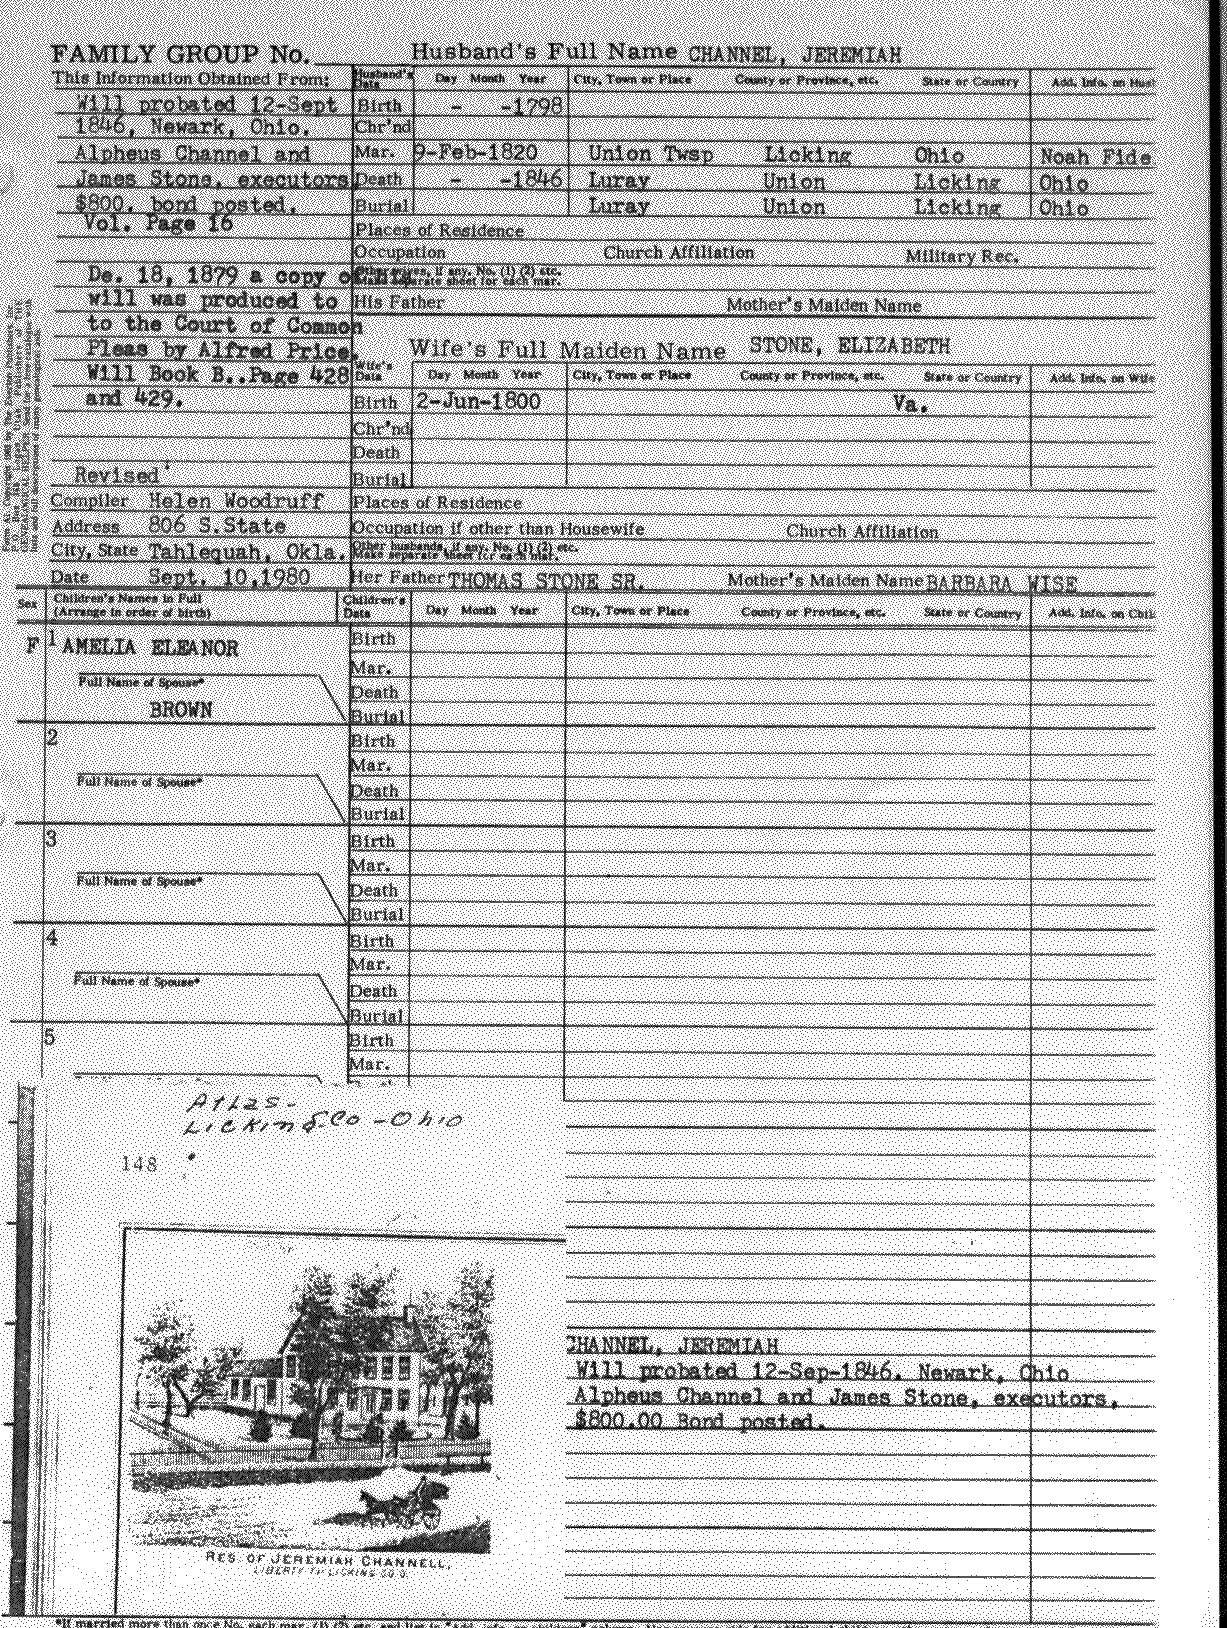 FAMILY GROUP No. Husband's Full Name CHANNEL, JEREMIAH
This Information Obtained From: Husband's Data Day Month Year City, Town or Place County or Province, etc. State or Country Add. Info. on Husb
Will probated 12-Sept Birth - -1798
1846, Newark, Ohio. Chr'nd
Alpheus Channel and Mar. 9-Feb-1820 Union Twsp Licking Ohio Noah Fide
James Stone, executors, Death - -1846 Luray Union Licking Ohio
$800. bond posted. Burial Luray Union Licking Ohio
Vol. Page 16 Places of Residence
Occupation Church Affiliation Military Rec.
De. 18, 1879 a copy of Other wives, if any. No. (1) (2) etc. Make separate sheet for each mar.
will was produced to His Father Mother's Maiden Name
to the Court of Common
Pleas by Alfred Price. Wife's Full Maiden Name STONE, ELIZABETH
Will Book B..Page 428 Wife's Data Day Month Year City, Town or Place County or Province, etc. State or Country Add. Info. on Wife
and 429. Birth 2-Jun-1800 Va.
Chr'nd
Death
Revised Burial
Compiler Helen Woodruff Places of Residence
Address 806 S.State Occupation if other than Housewife Church Affiliation
City, State Tahlequah, Okla. Other husbands, if any. No. (1) (2) etc. Make separate sheet for each mar.
Date Sept. 10,1980 Her Father THOMAS STONE SR. Mother's Maiden Name BARBARA WISE
Sex Children's Names in Full (Arrange in order of birth) Children's Data Day Month Year City, Town or Place County or Province, etc. State or Country Add. Info. on Chil
F 1 AMELIA ELEANOR Birth
Mar.
Full Name of Spouse* Death
BROWN Burial
2 Birth
Mar.
Full Name of Spouse* Death
Burial
3 Birth
Mar.
Full Name of Spouse* Death
Burial
4 Birth
Mar.
Full Name of Spouse* Death
Burial
5 Birth
Mar.
Atlas-
Licking Co - Ohio
148
CHANNEL, JEREMIAH
Will probated 12-Sep-1846. Newark, Ohio
Alpheus Channel and James Stone, executors,
$800.00 Bond posted.
RES. OF JEREMIAH CHANNELL,
LIBERTY TP. LICKING CO. O.
*If married more than once No. each mar. (1) (2) etc. and list in